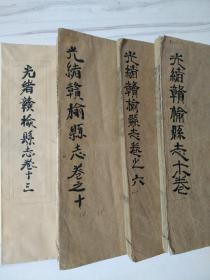 光緒贛榆縣志卷十三
光緒贛榆縣志卷之十
光緒贛榆縣志卷之六
光緒贛榆縣志卷